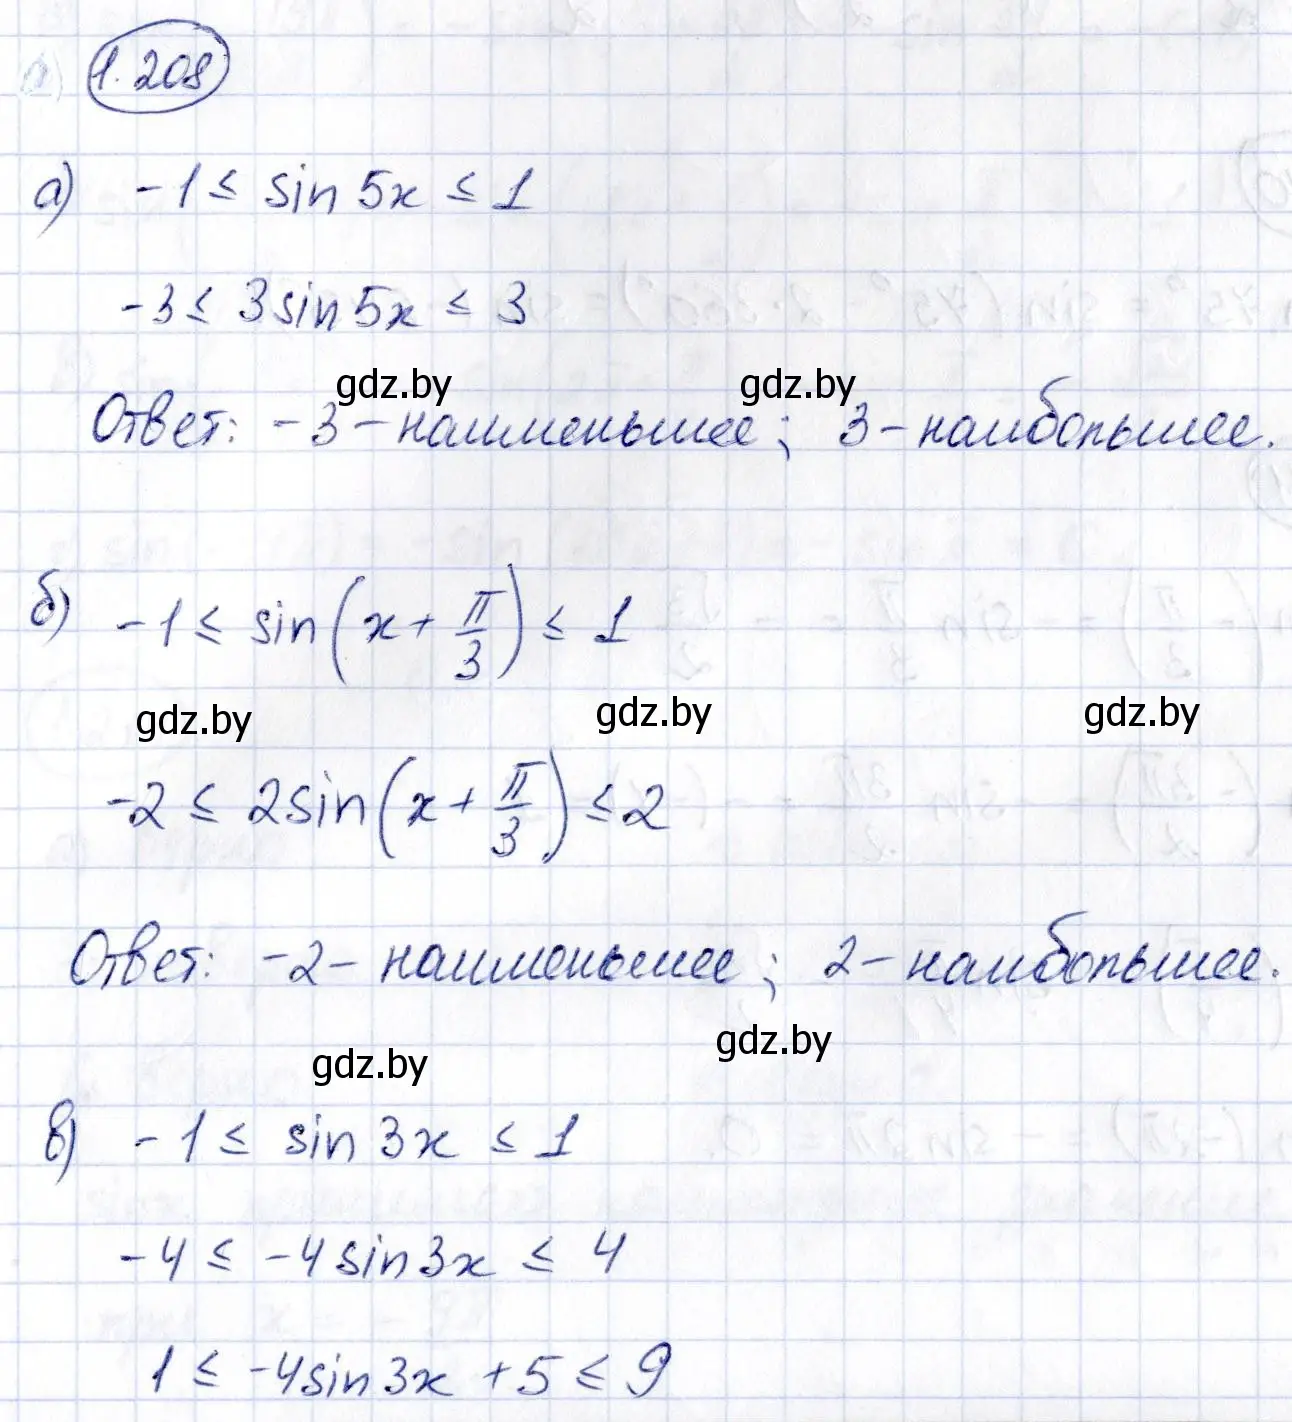 1.208
а) -1 ≤ sin 5x ≤ 1
-3 ≤ 3sin 5x ≤ 3
gdz.by gdz.by
Ответ: -3 - наименьшее; 3 - наибольшее.
б) -1 ≤ sin(x + π/3) ≤ 1
gdz.by gdz.by gdz.by
-2 ≤ 2sin(x + π/3) ≤ 2
Ответ: -2 - наименьшее; 2 - наибольшее.
gdz.by gdz.by
в) -1 ≤ sin 3x ≤ 1
-4 ≤ -4sin 3x ≤ 4
1 ≤ -4sin 3x + 5 ≤ 9